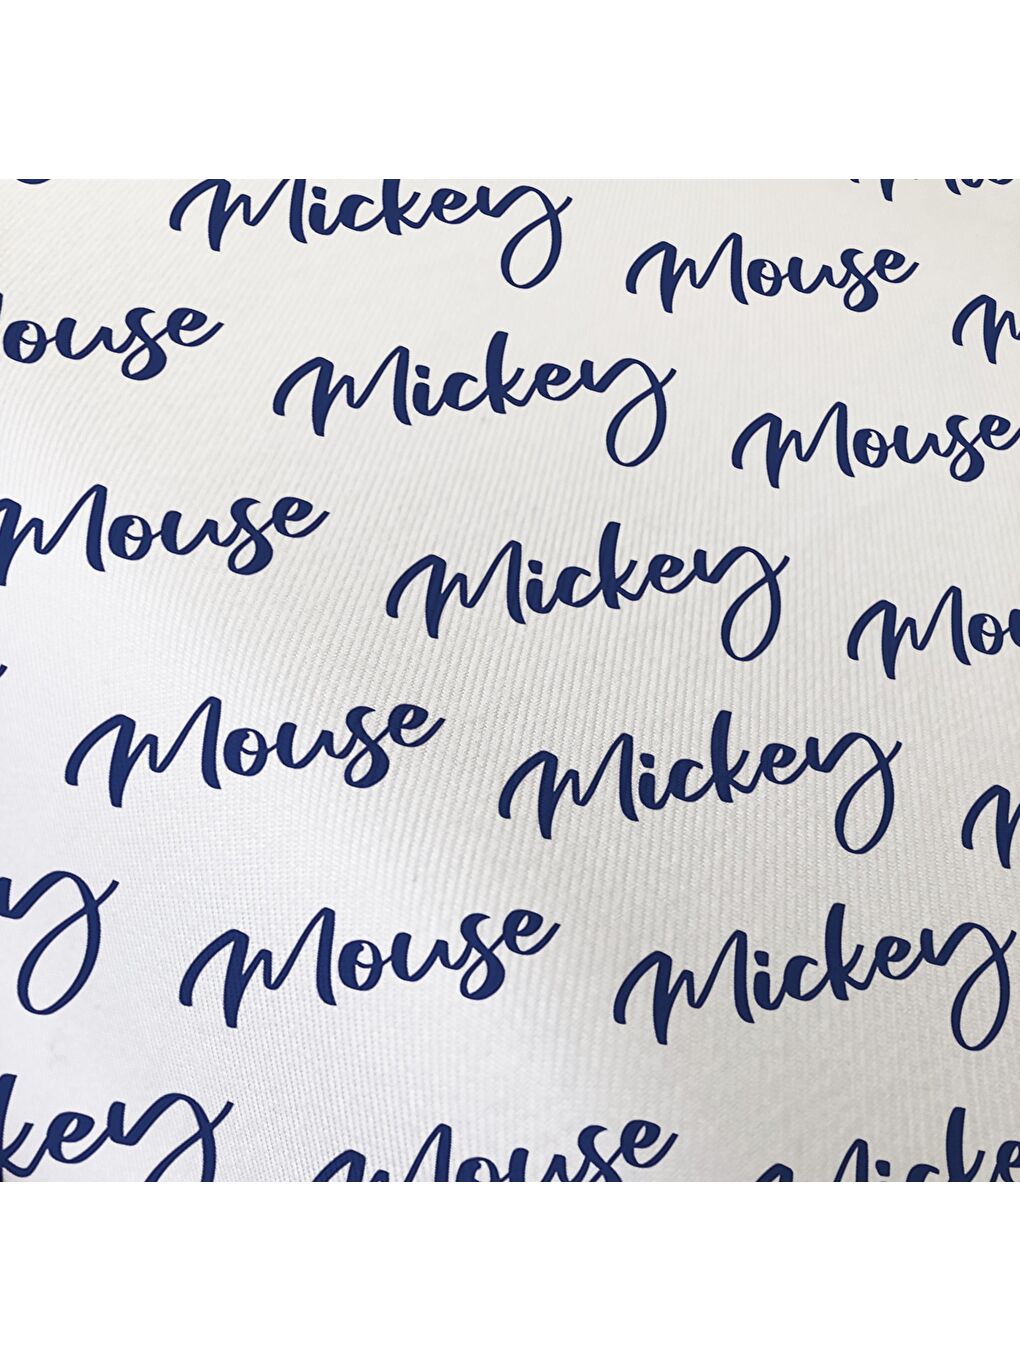 Mickey Mouse
Mouse Mickey Mouse
Mouse Mickey
Mouse Mickey
Mouse Mickey
Mouse